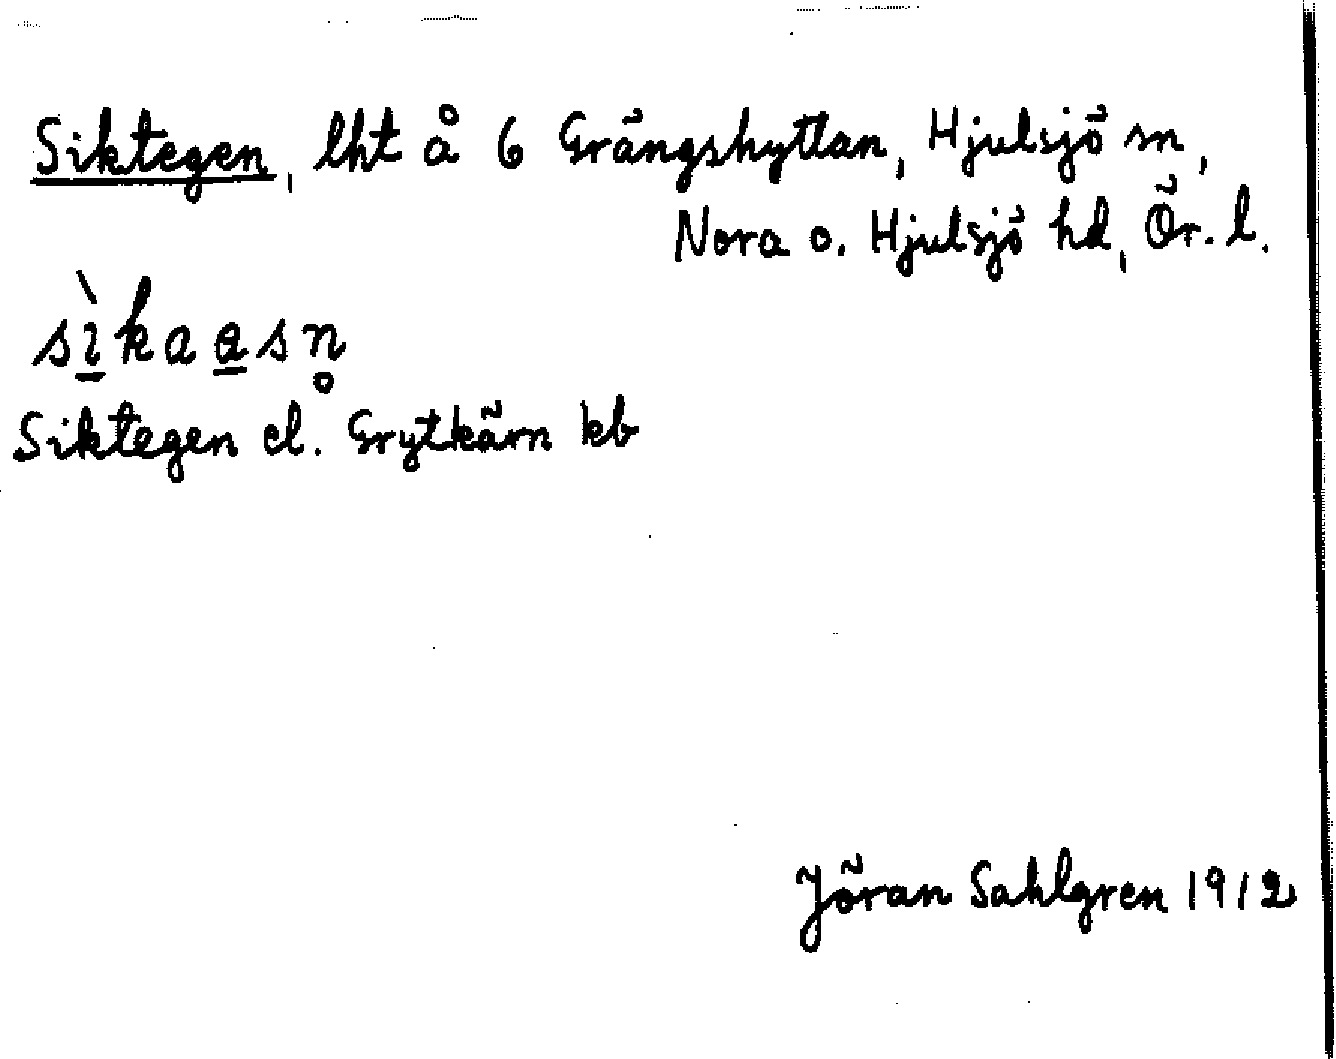 Siktegen, lht å 6 Grängshyttan, Hjulsjö sn,
Nora o. Hjulsjö hd, Ör. l.
sìkaasn̥
Siktegen el. Grytkärn kb
Jöran Sahlgren 1912